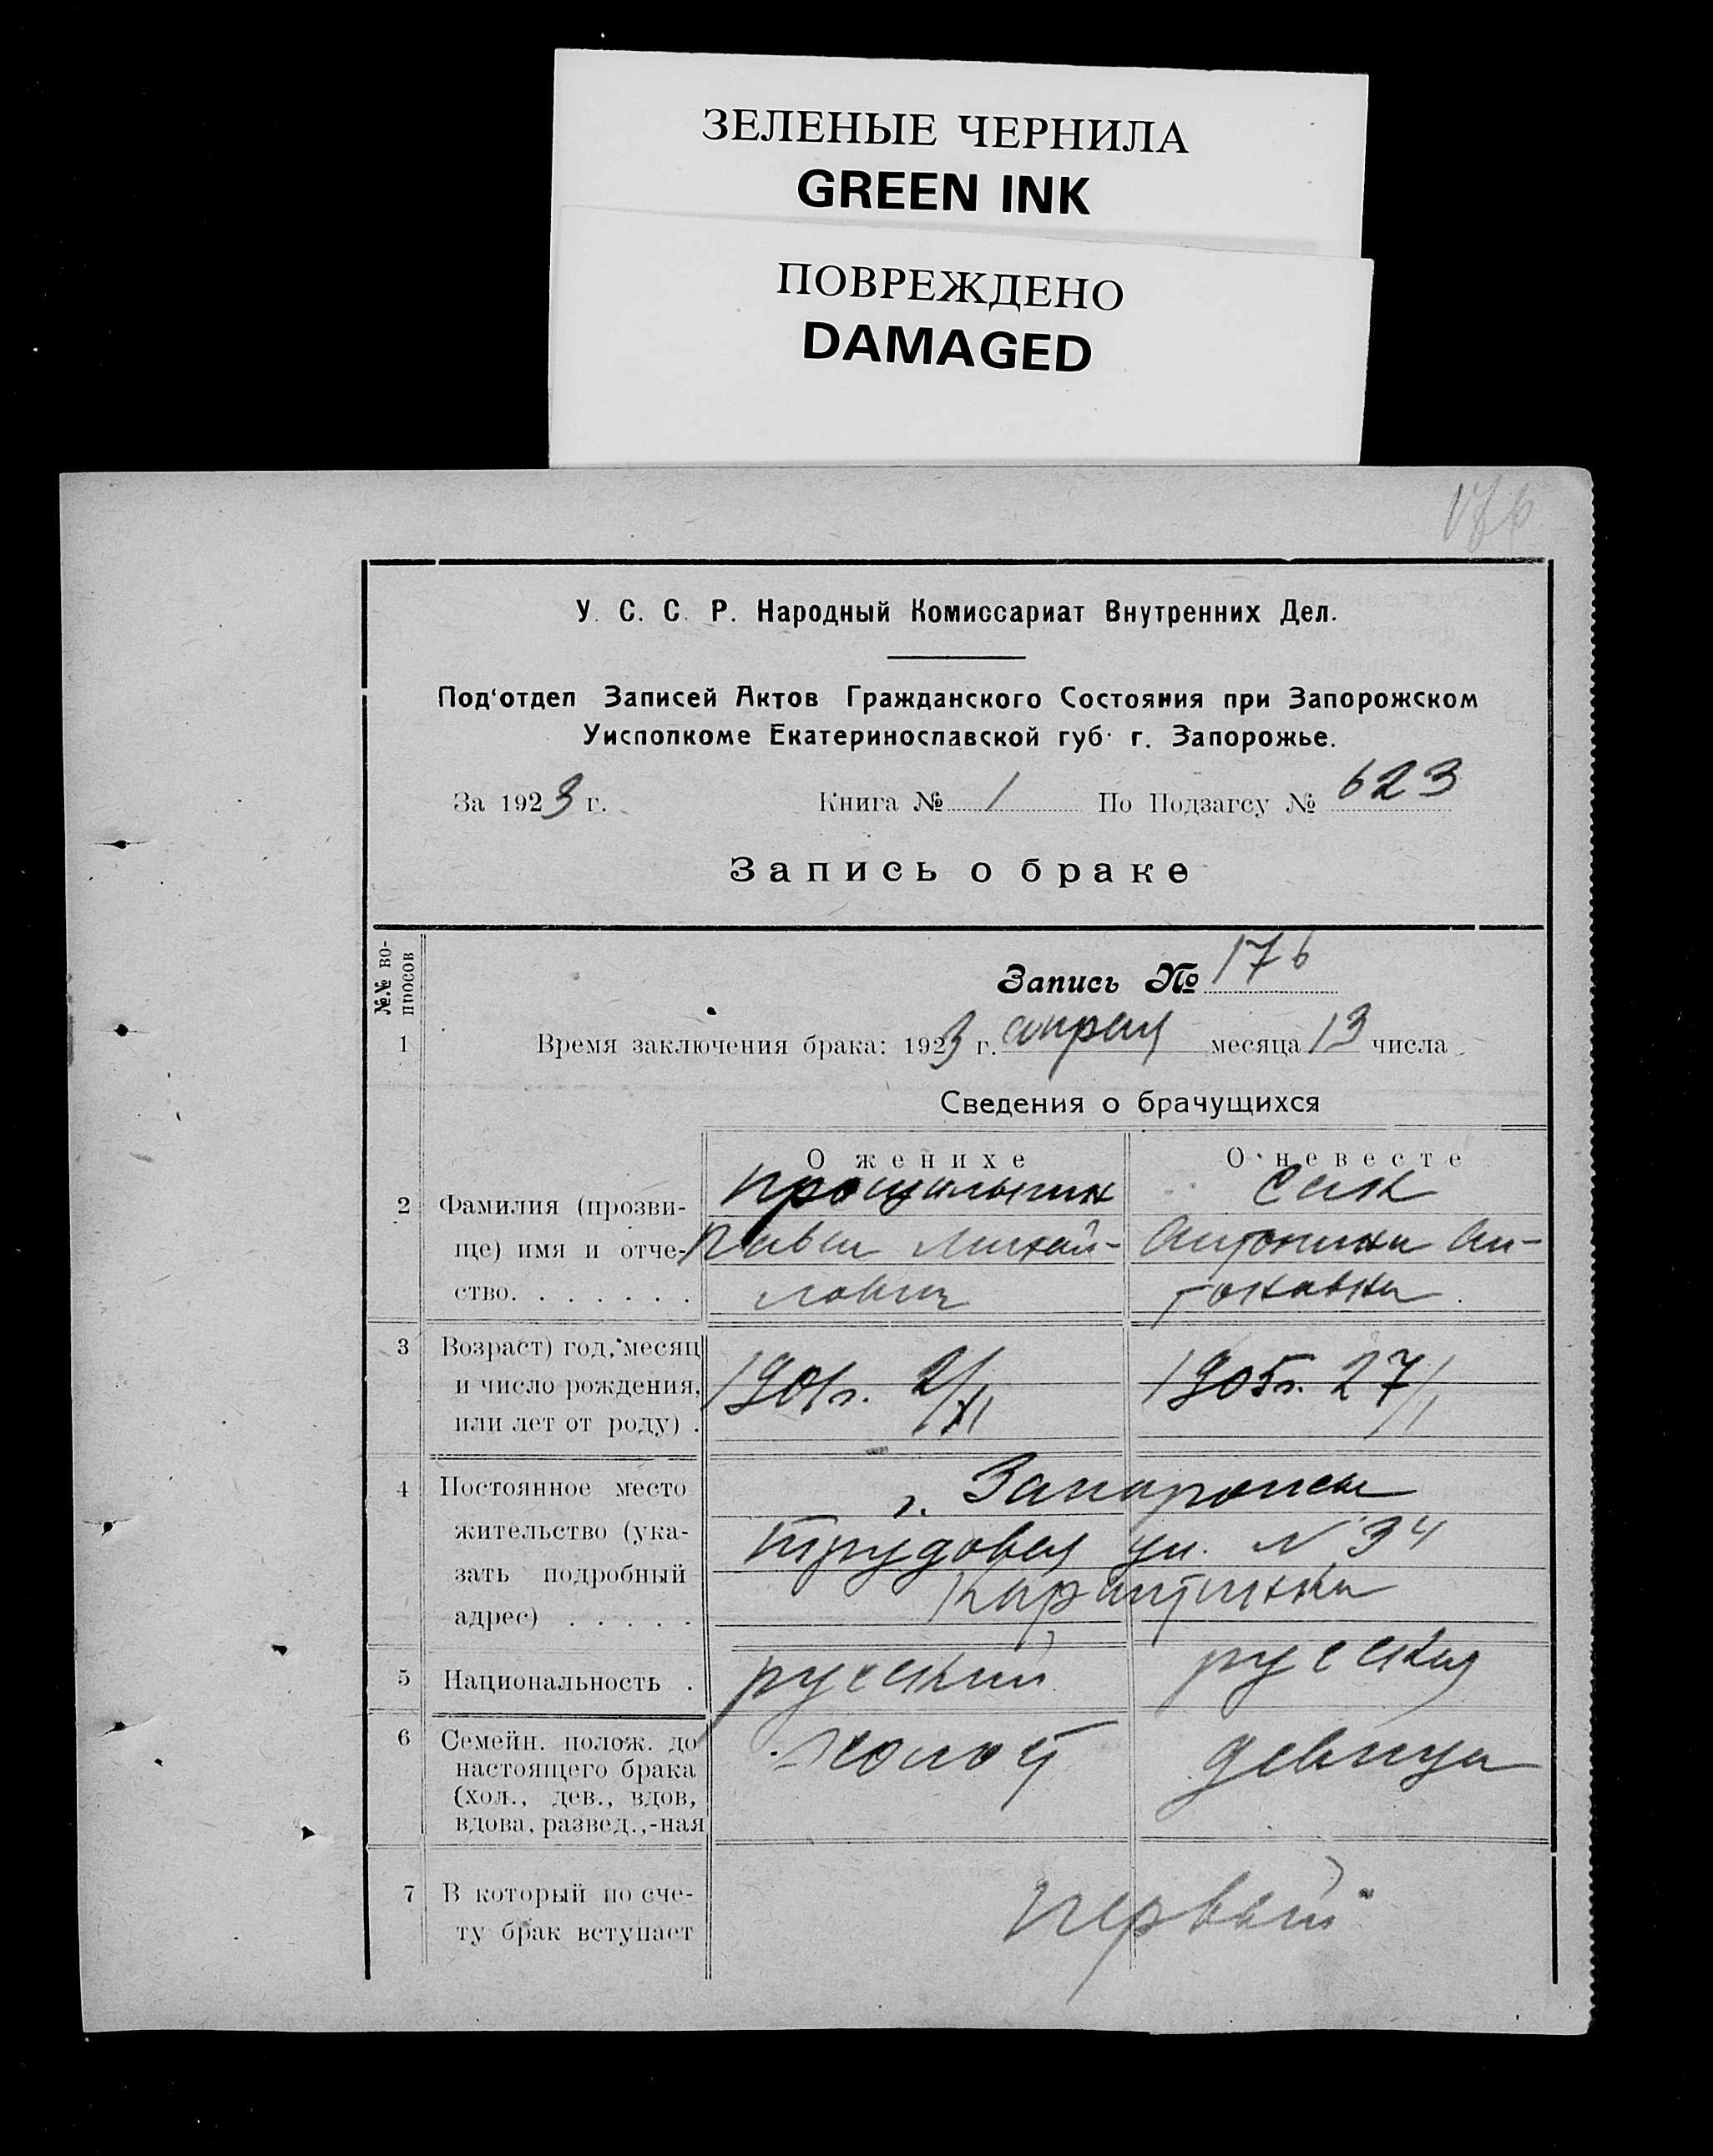 ЗЕЛЕНЫЕ ЧЕРНИЛА
GREEN INK
ПОВРЕЖДЕНО
DAMAGED
176
У. С. С. Р. Народный Комиссариат Внутренних Дел.
Под'отдел Записей Актов Гражданского Состояния при Запорожском
Уисполкоме Екатеринославской губ. г. Запорожье.
За 1923 г. Книга № 1 По Подзагсу № 623
Запись о браке
№.№ во-
просов
Запись № 176
1 Время заключения брака: 1923 г. апреля месяца 13 числа
Сведения о брачущихся
О женихе О невесте
2 Фамилия (прозви- Прощальник Сак
ще) имя и отче- Павел Михай- Антонина Ан-
ство. . . . . . . лович тоновна
3 Возраст) год, месяц
и число рождения, 1901г. 2/XI 1905г. 27/I
или лет от роду) .
4 Постоянное место г. Запорожье
жительство (ука- Трудовая ул. N 34
зать подробный Карантинка
адрес) . . . . .
5 Национальность . русский русская
6 Семейн. полож. до холост девица
настоящего брака
(хол., дев., вдов,
вдова, развед.,-ная
7 В который по сче- первый
ту брак вступает